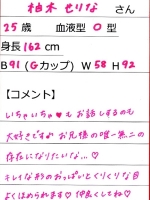 柚木 せりな さん
25歳 血液型 O型
身長162cm
B91(Gカップ)W58H92
【コメント】
いちゃいちゃ♥もお話しするのも
大好きですが お兄様の唯一無二の
存在になりたいな…♡
キレイな形のおっぱいとくりくりな目
よくほめられます♡仲良くしてね♡